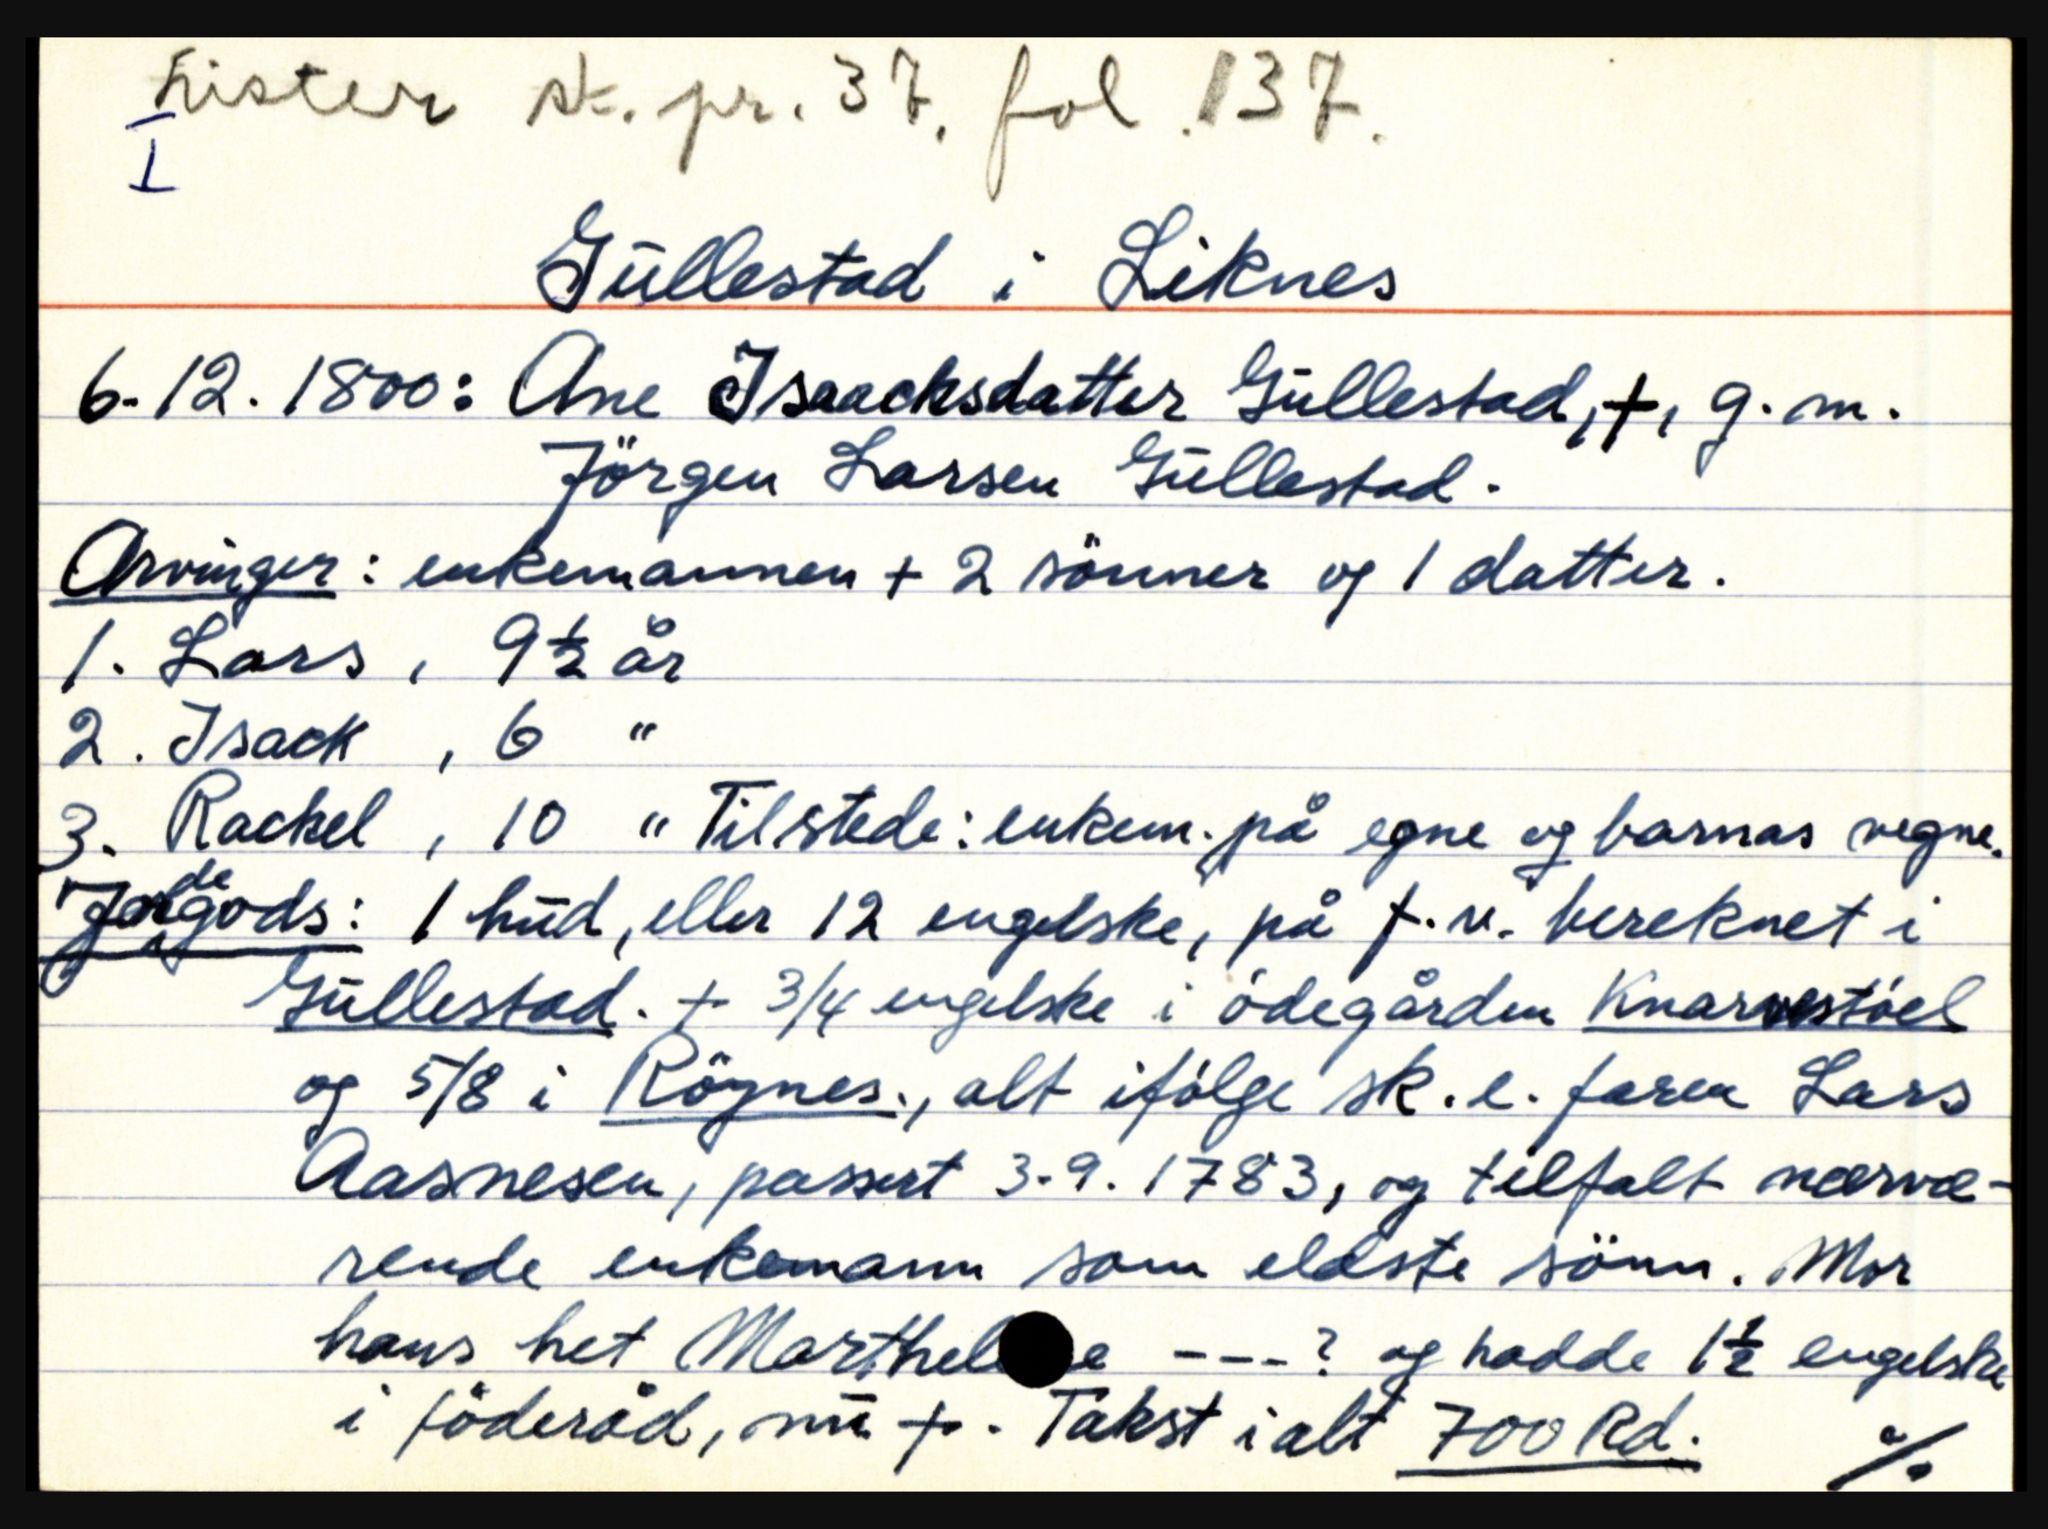 Lister sk. pr. 37, fol. 137.
I
Gūllestad i Liknes
6.12.1800: Ane Isaacksdatter Gūllestad, †, g. m.
Jörgen Larsen Gūllestad.
Arvinger: enkemannen + 2 sönner og 1 datter.
1. Lars, 9 1/2 år
2. Isack, 6 "
3. Rackel, 10 " Tilstede: enkem. på egne og barnas vegne.
Jordegods: 1 hūd, eller 12 engelske, på f. v. bereknet i
Gūllestad. + 3/4 engelske i ödegården Knarvestöel
og 5/8 i Röynes., alt ifölge sk. e. faren Lars
Aasnesen, passert 3.9.1783, og tilfalt nærvæ-
rende enkemann som eldste sönn. Mor
hans het Marthel e ---? og hadde 1 1/2 engelske
i föderåd, nū †. Takst i alt 700 Rd.
%